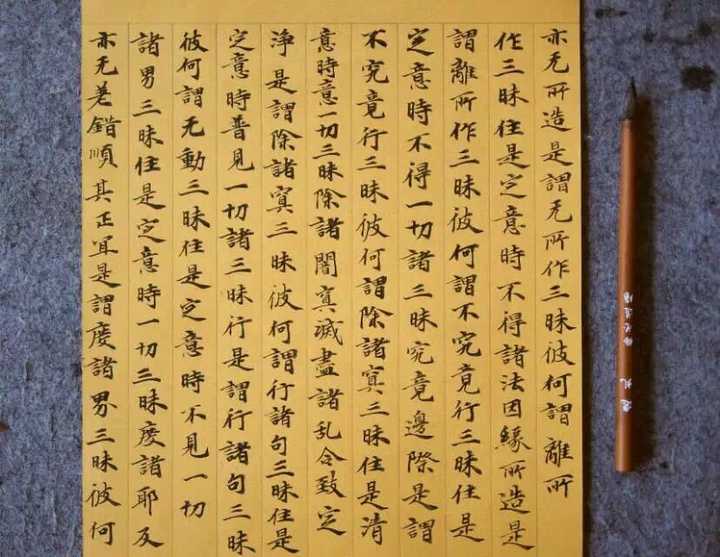 亦无所造是謂无所作三昧彼何謂離所
作三昧住是定意時不得諸法因緣所造是
謂離所作三昧彼何謂不究竟行三昧住是
定意時不得一切諸三昧究竟邊際是謂
不究竟行三昧彼何謂除諸冥三昧住是清
意時意一切三昧除諸闇冥滅盡諸乱令致定
淨是謂除諸冥三昧彼何謂行諸句三昧住是
定意時普見一切諸三昧行是謂行諸句三昧
彼何謂无動三昧住是定意時不見一切
諸男三昧住是定意時一切三昧度諸耶反
亦无差錯順其正冝是謂度諸界三昧彼何